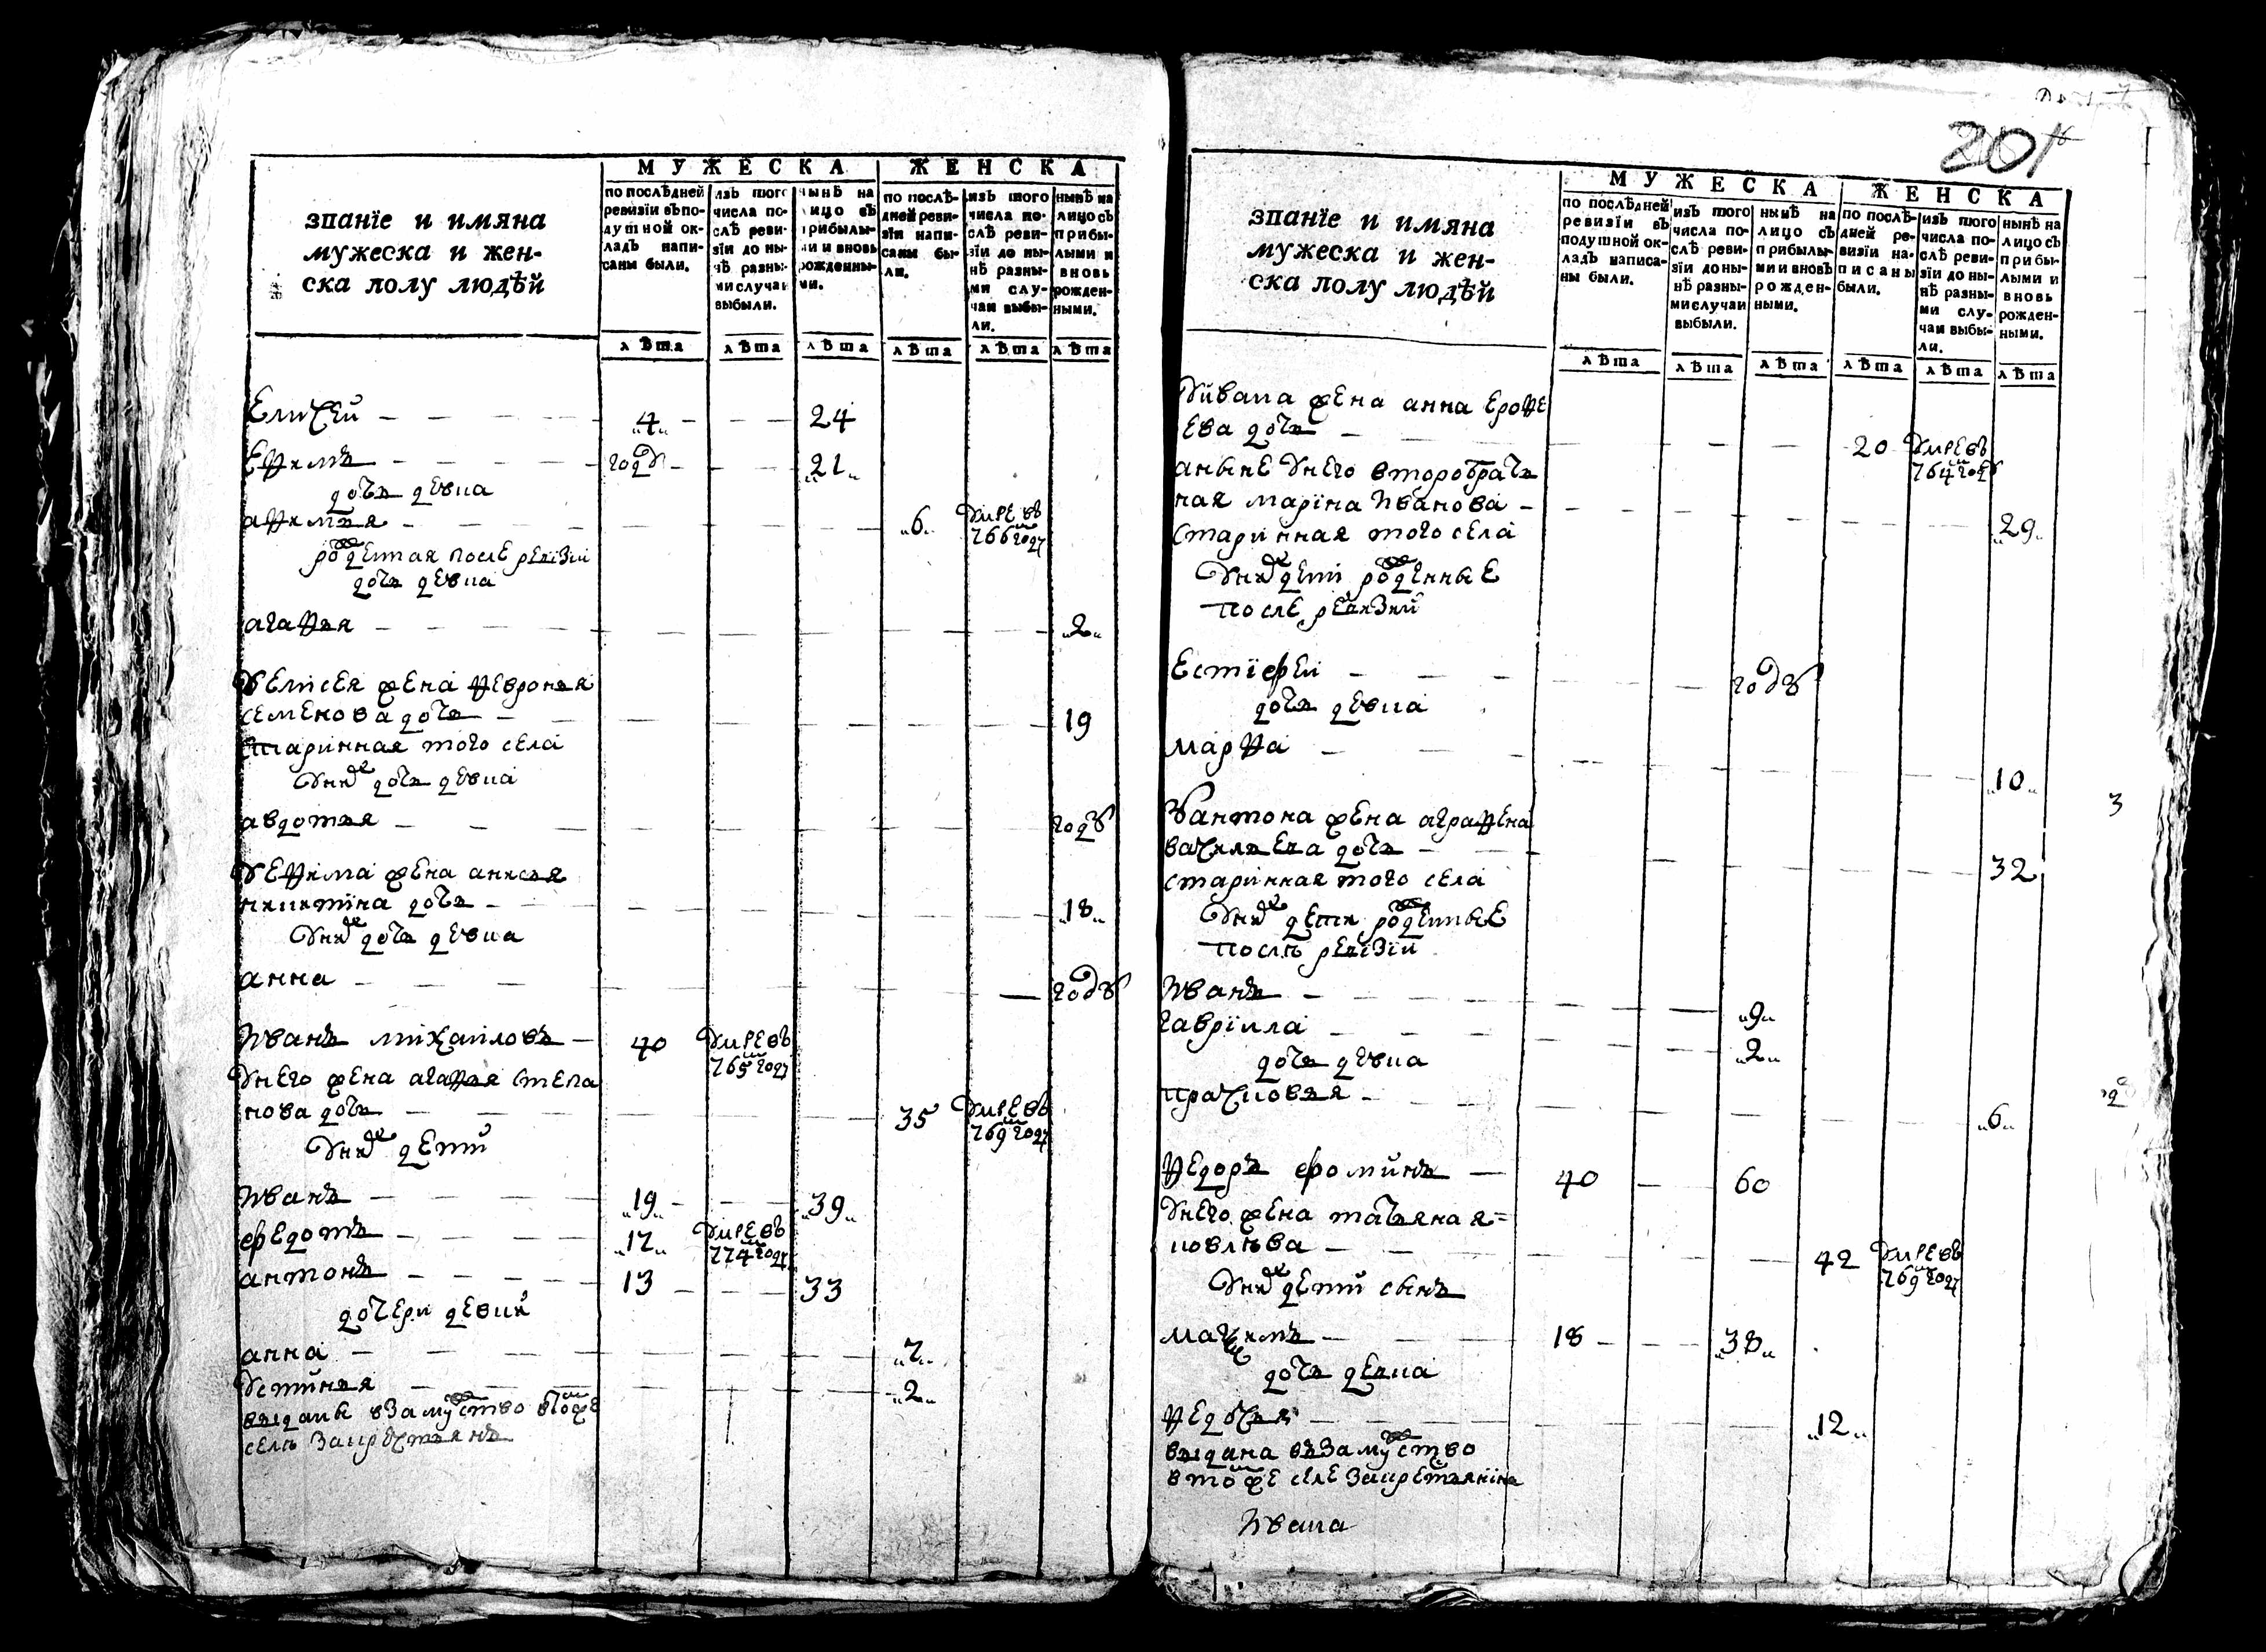 201
МУЖЕСКА ЖЕНСКА
званїе и имяна
мужеска и жен-
ска полу людѣй
по послѣдней
ревизїи въ по-
душной ок-
ладъ напи-
саны были.
изъ того
числа по-
слѣ реви-
зїи до ны-
нѣ разны-
ми случаи
выбыли.
нынѣ на
лицо съ
прибылы-
ми и вновь
рожденны-
ми.
по послѣ-
дней реви-
зїи напи-
саны бы-
ли.
изъ того
числа по-
слѣ реви-
зїи до ны-
нѣ разны-
ми слу-
чаи выбы-
ли.
нынѣ на
лицо съ
прибы-
лыми и
вновь
рожден-
ными.
лѣта лѣта лѣта лѣта лѣта лѣта
Елисей 4 24
Ефимъ годъ 21
дочь девка
афимья 6 умре въ 766 году
рожденная после ревизіи
дочь девка
агафья 2
У Елисея жена Феврония
семенова дочь 19
старинная того села
У них дочь девка
авдотья годъ
У Ефима жена анисья
никитина дочь 18
У них дочь девка
анна годъ
Иванъ михаиловъ 40 умре въ 765 году
У него жена агафья степа
нова дочь 35 умре въ 769 году
У них дети
Иванъ 19 39
федотъ 17 умре въ 774 году
антонъ 13 33
дочери девки
анна 7
Устинья 2
выданы взамужство втомже
селѣ за крестьянъ
МУЖЕСКА ЖЕНСКА
званїе и имяна
мужеска и жен-
ска полу людѣй
по послѣдней
ревизїи въ
подушной ок-
ладъ написа-
ны были.
изъ того
числа по-
слѣ реви-
зїи до ны-
нѣ разны-
ми случаи
выбыли.
нынѣ на
лицо съ
прибылы-
ми и вновь
рожден-
ными.
по послѣ-
дней ре-
визїи на-
писаны
были.
изъ того
числа по-
слѣ реви-
зїи до ны-
нѣ разны-
ми слу-
чаи выбы-
ли.
нынѣ на
лицо съ
прибы-
лыми и
вновь
рожден-
ными.
лѣта лѣта лѣта лѣта лѣта лѣта
У ивана жена анна ерофе
ева дочь 20 умре въ 764 году
аныне у него второбрач
ная марїна Иванова 29
старинная того села
У них дети рожденные
после ревизии
Естїфеи годъ
дочь девка
марфа 10
У антона жена аграфена
васильева дочь 32
старинная того села
У них дети рожденные
послѣ ревизіи
Иванъ 9
гаврїила 2
дочь девка
прасковья 6
Федоръ фоминъ 40 60
У него жена татьяна я=
ковлѣва 42 умре въ 769 году
У них дети сынъ
максимъ 18 38
дочь девка
Федосья 12
выдана взамужство
втомже селе за крестьянина
Ивана